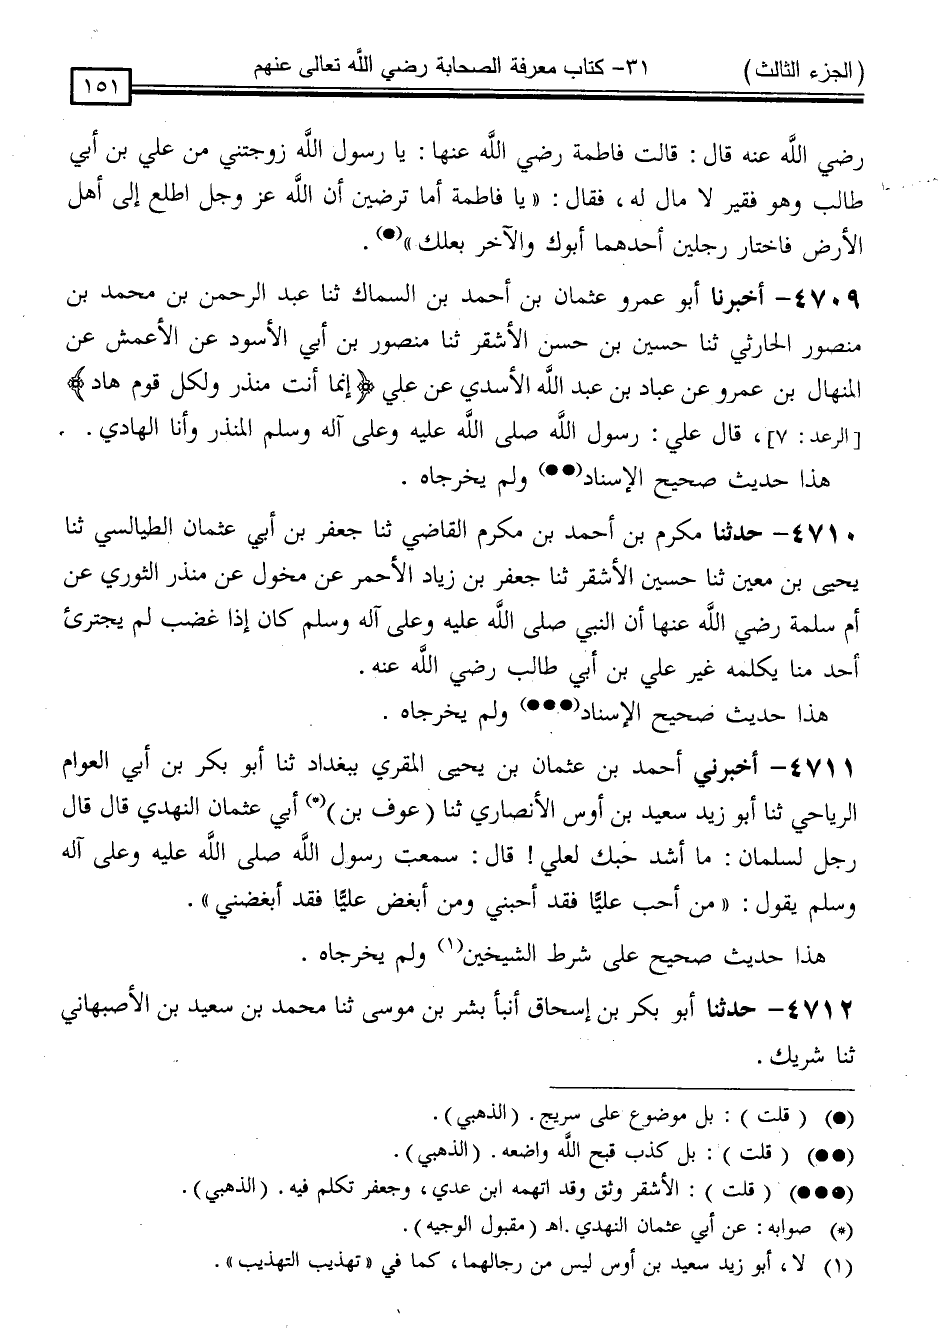 (الجزء الثالث) ٣١- كتاب معرفة الصحابة رضي الله تعالى عنهم ١٥١
رضي الله عنه قال : قالت فاطمة رضي الله عنها : يا رسول الله زوجتني من علي بن أبي
طالب وهو فقير لا مال له ، فقال : « يا فاطمة أما ترضين أن الله عز وجل اطلع إلى أهل
الأرض فاختار رجلين أحدهما أبوك والآخر بعلك »(●) .
٤٧٠٩- أخبرنا أبو عمرو عثمان بن أحمد بن السماك ثنا عبد الرحمن بن محمد بن
منصور الحارثي ثنا حسين بن حسن الأشقر ثنا منصور بن أبي الأسود عن الأعمش عن
المنهال بن عمرو عن عباد بن عبد الله الأسدي عن علي ﴿إنما أنت منذر ولكل قوم هاد﴾
[الرعد : ٧] ، قال علي : رسول الله صلى الله عليه وعلى آله وسلم المنذر وأنا الهادي .
هذا حديث صحيح الإسناد(●●) ولم يخرجاه .
٤٧١٠- حدثنا مكرم بن أحمد بن مكرم القاضي ثنا جعفر بن أبي عثمان الطيالسي ثنا
يحيى بن معين ثنا حسين الأشقر ثنا جعفر بن زياد الأحمر عن مخول عن منذر الثوري عن
أم سلمة رضي الله عنها أن النبي صلى الله عليه وعلى آله وسلم كان إذا غضب لم يجترئ
أحد منا يكلمه غير علي بن أبي طالب رضي الله عنه .
هذا حديث صحيح الإسناد(●●●) ولم يخرجاه .
٤٧١١- أخبرني أحمد بن عثمان بن يحيى المقري ببغداد ثنا أبو بكر بن أبي العوام
الرياحي ثنا أبو زيد سعيد بن أوس الأنصاري ثنا (عوف بن)(*) أبي عثمان النهدي قال قال
رجل لسلمان : ما أشد حبك لعلي ! قال : سمعت رسول الله صلى الله عليه وعلى آله
وسلم يقول : « من أحب عليًّا فقد أحبني ومن أبغض عليًّا فقد أبغضني » .
هذا حديث صحيح على شرط الشيخين(١) ولم يخرجاه .
٤٧١٢- حدثنا أبو بكر بن إسحاق أنبأ بشر بن موسى ثنا محمد بن سعيد بن الأصبهاني
ثنا شريك .
(●) ( قلت ) : بل موضوع على سريج . (الذهبي) .
(●●) ( قلت ) : بل كذب قبح الله واضعه . (الذهبي) .
(●●●) ( قلت ) : الأشقر وثق وقد اتهمه ابن عدي ، وجعفر تكلم فيه . (الذهبي) .
(*) صوابه : عن أبي عثمان النهدي .اهـ (مقبول الوجيه) .
(١) لا ، أبو زيد سعيد بن أوس ليس من رجالهما ، كما في «تهذيب التهذيب» .